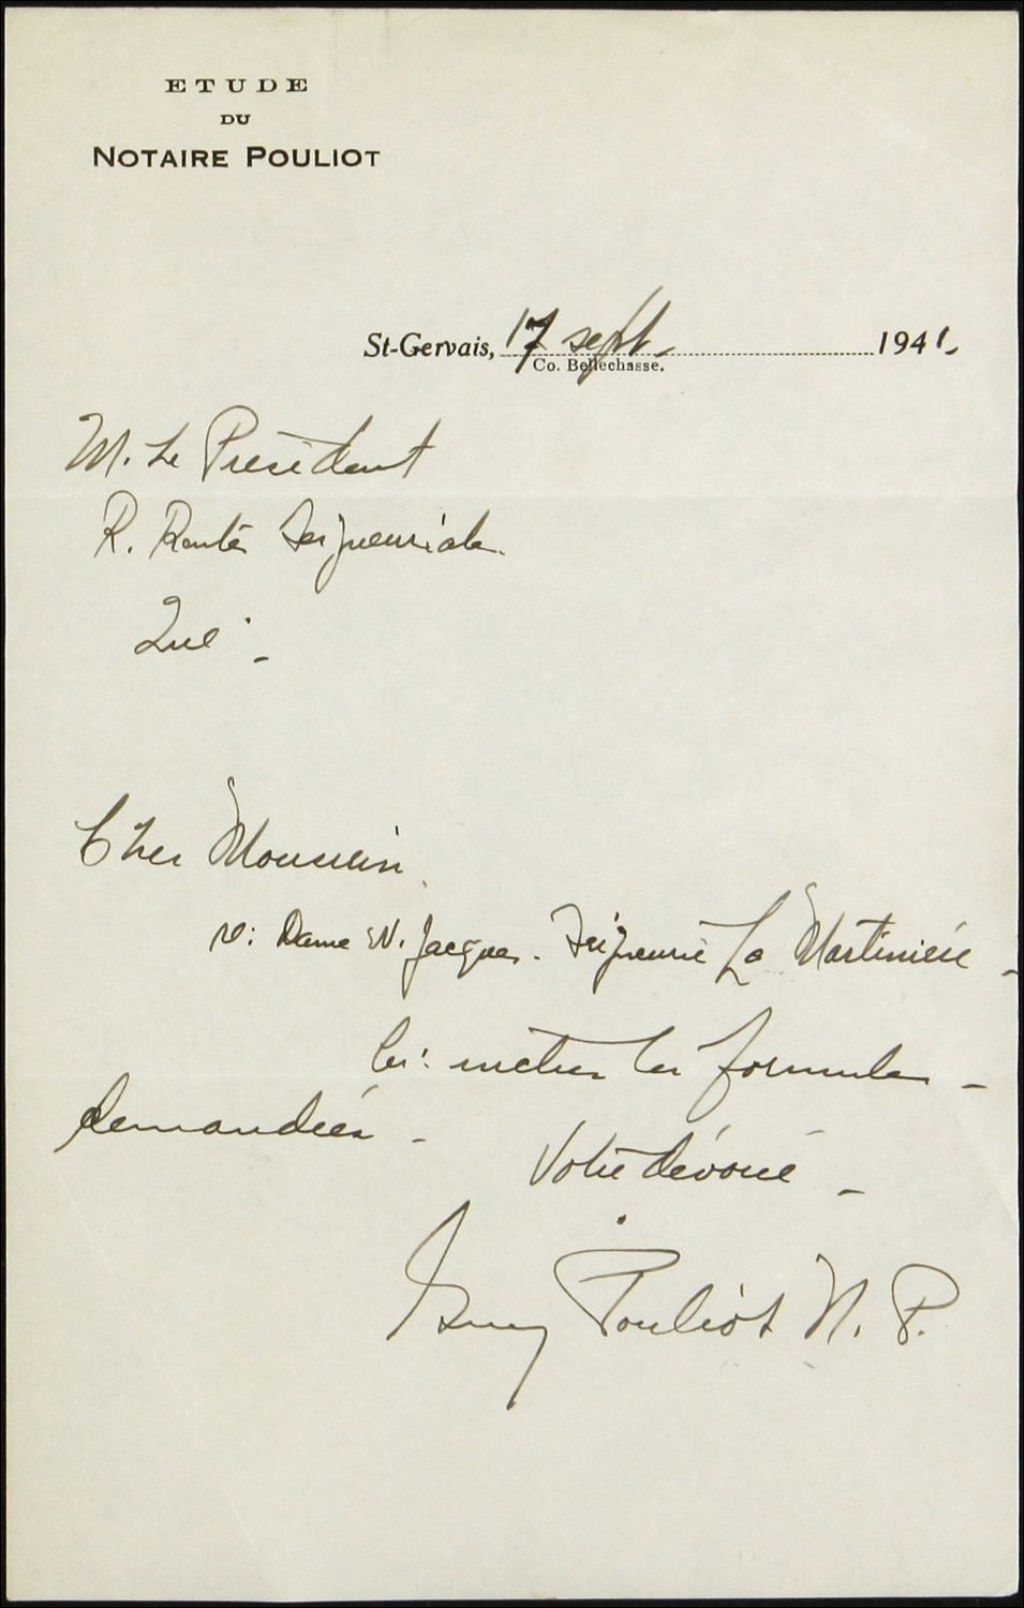 ETUDE
DU
NOTAIRE POULIOT
St-Gervais, 17 sept. 1941.
Co. Bellechasse.
M. Le Président
R. Rentes Seigneuriales.
Qué.
Cher Monsieur,
re: Dame W. Jacques. Seigneurie La Martinière
les formules
demandées.
Votre dévoué
Pouliot N. P.